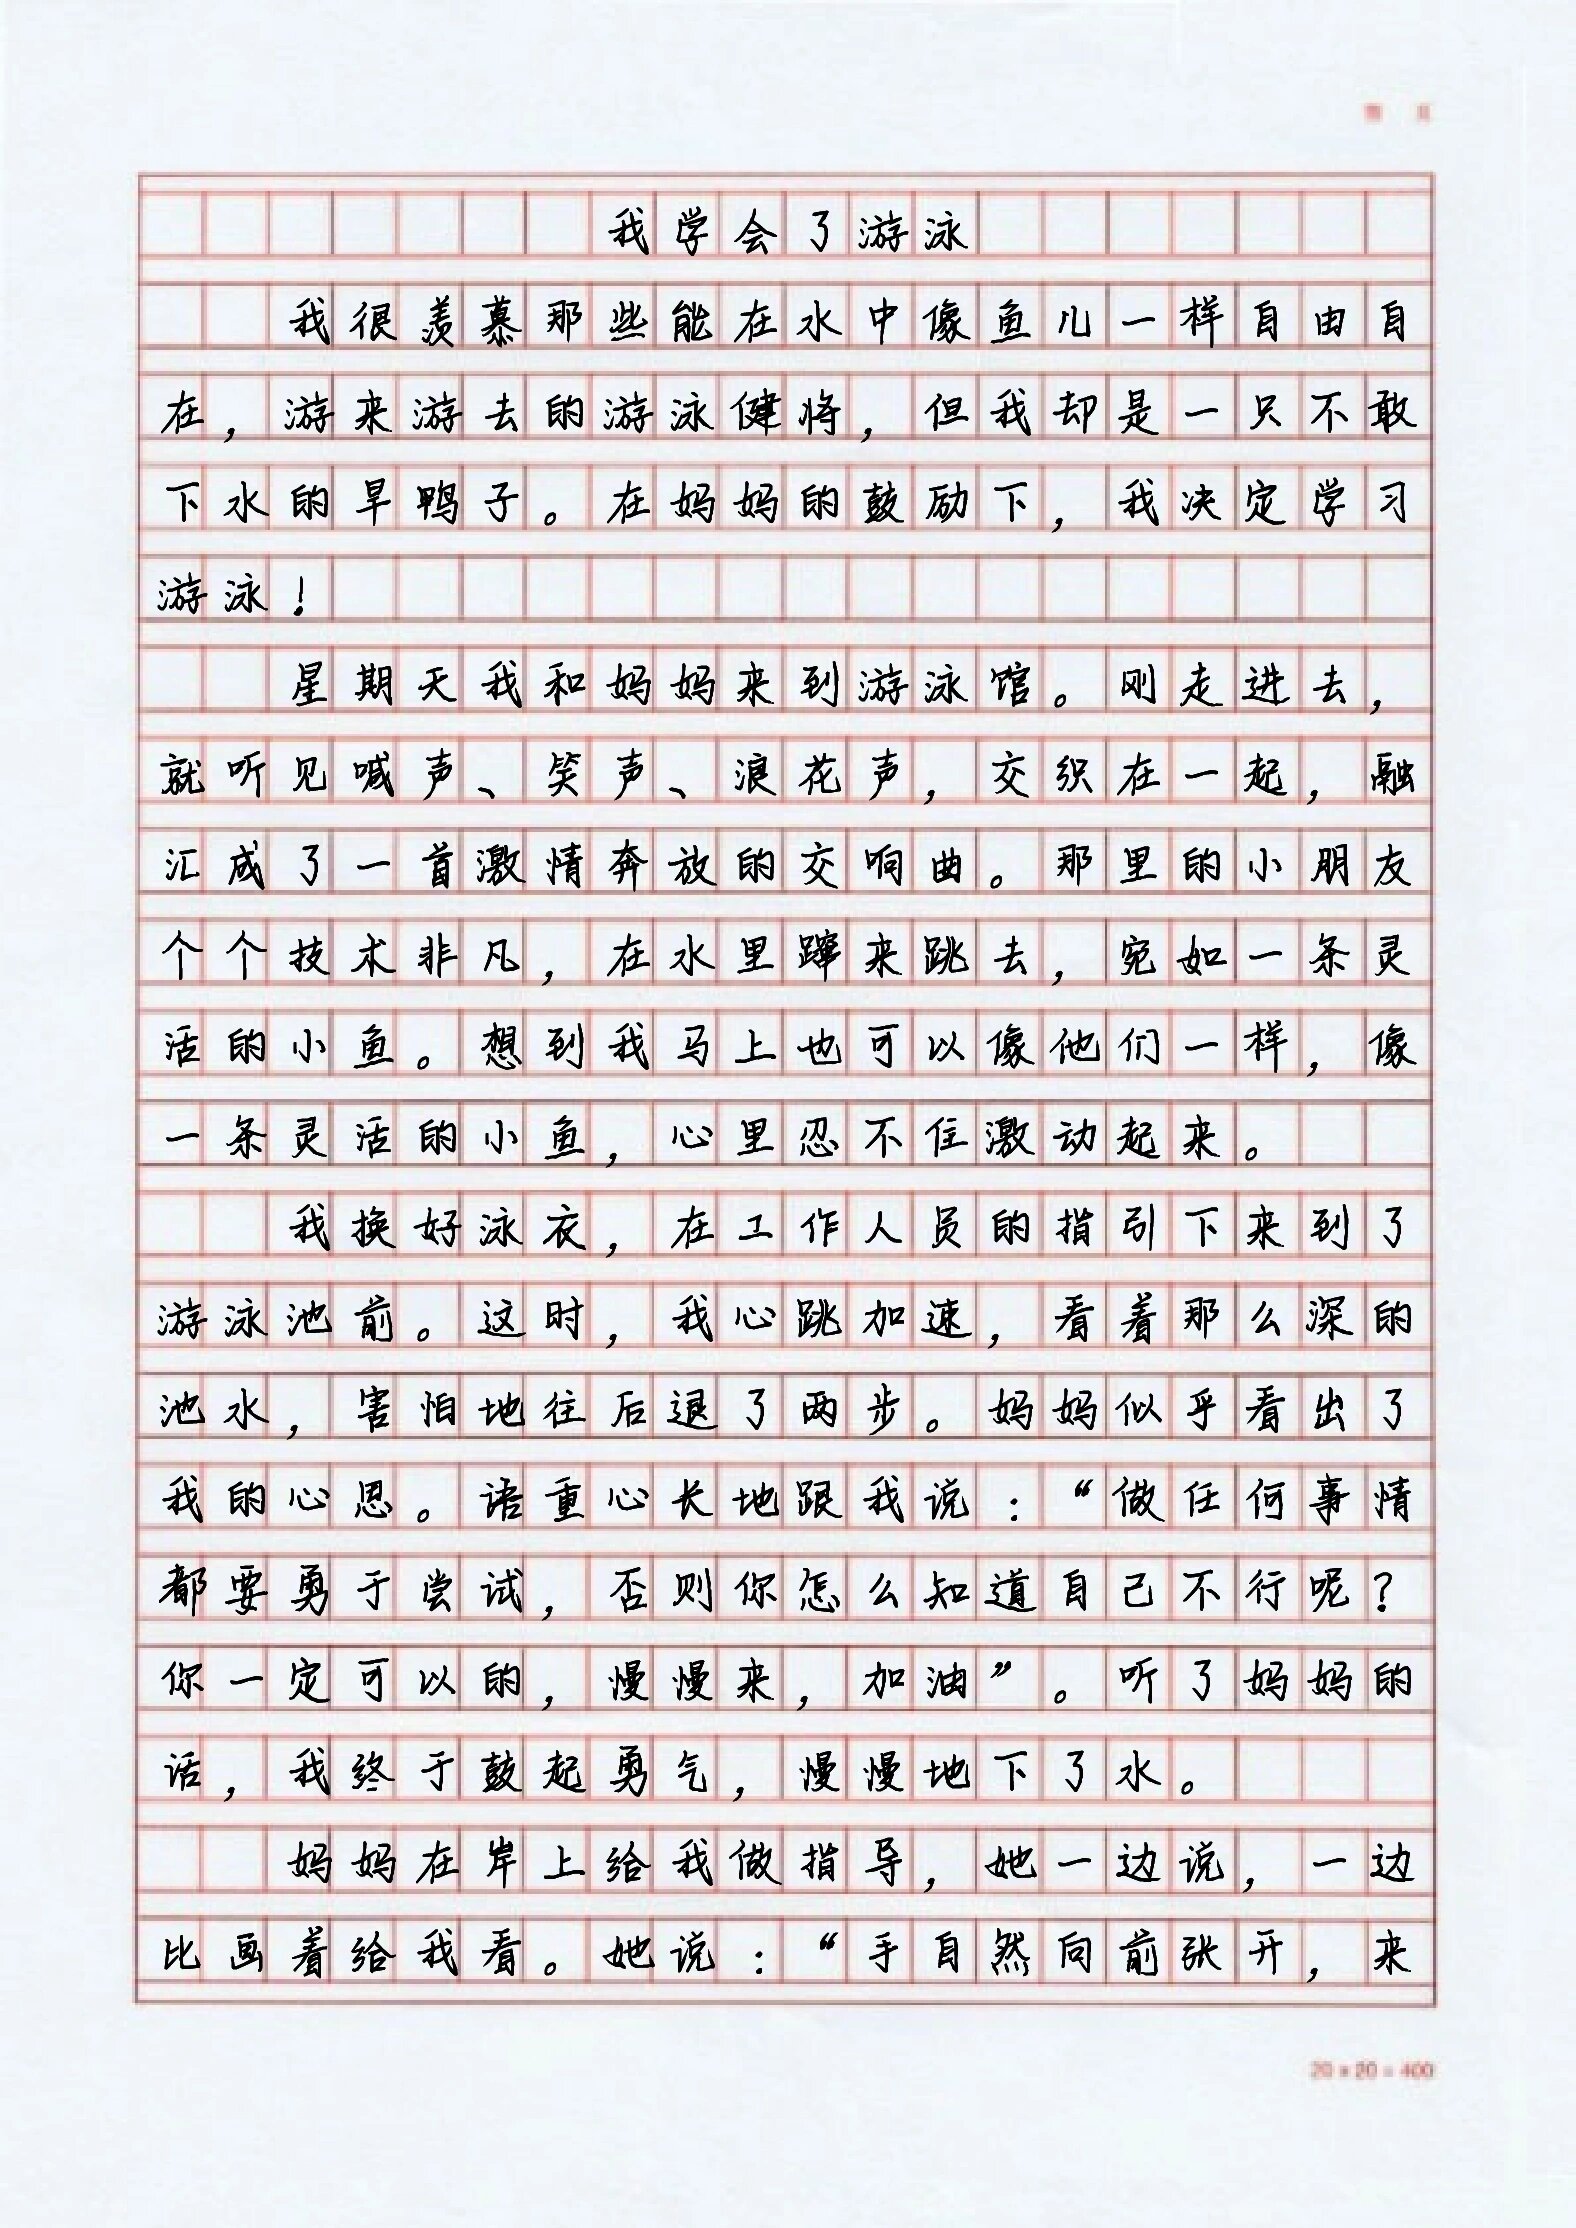 我学会了游泳
我很羡慕那些能在水中像鱼儿一样自由自
在，游来游去的游泳健将，但我却是一只不敢
下水的旱鸭子。在妈妈的鼓励下，我决定学习
游泳！
星期天我和妈妈来到游泳馆。刚走进去，
就听见喊声、笑声、浪花声，交织在一起，融
汇成了一首激情奔放的交响曲。那里的小朋友
个个技术非凡，在水里蹿来跳去，宛如一条灵
活的小鱼。想到我马上也可以像他们一样，像
一条灵活的小鱼，心里忍不住激动起来。
我换好泳衣，在工作人员的指引下来到了
游泳池前。这时，我心跳加速，看着那么深的
池水，害怕地往后退了两步。妈妈似乎看出了
我的心思。语重心长地跟我说：“做任何事情
都要勇于尝试，否则你怎么知道自己不行呢？
你一定可以的，慢慢来，加油”。听了妈妈的
话，我终于鼓起勇气，慢慢地下了水。
妈妈在岸上给我做指导，她一边说，一边
比画着给我看。她说：“手自然向前张开，来
20×20=400